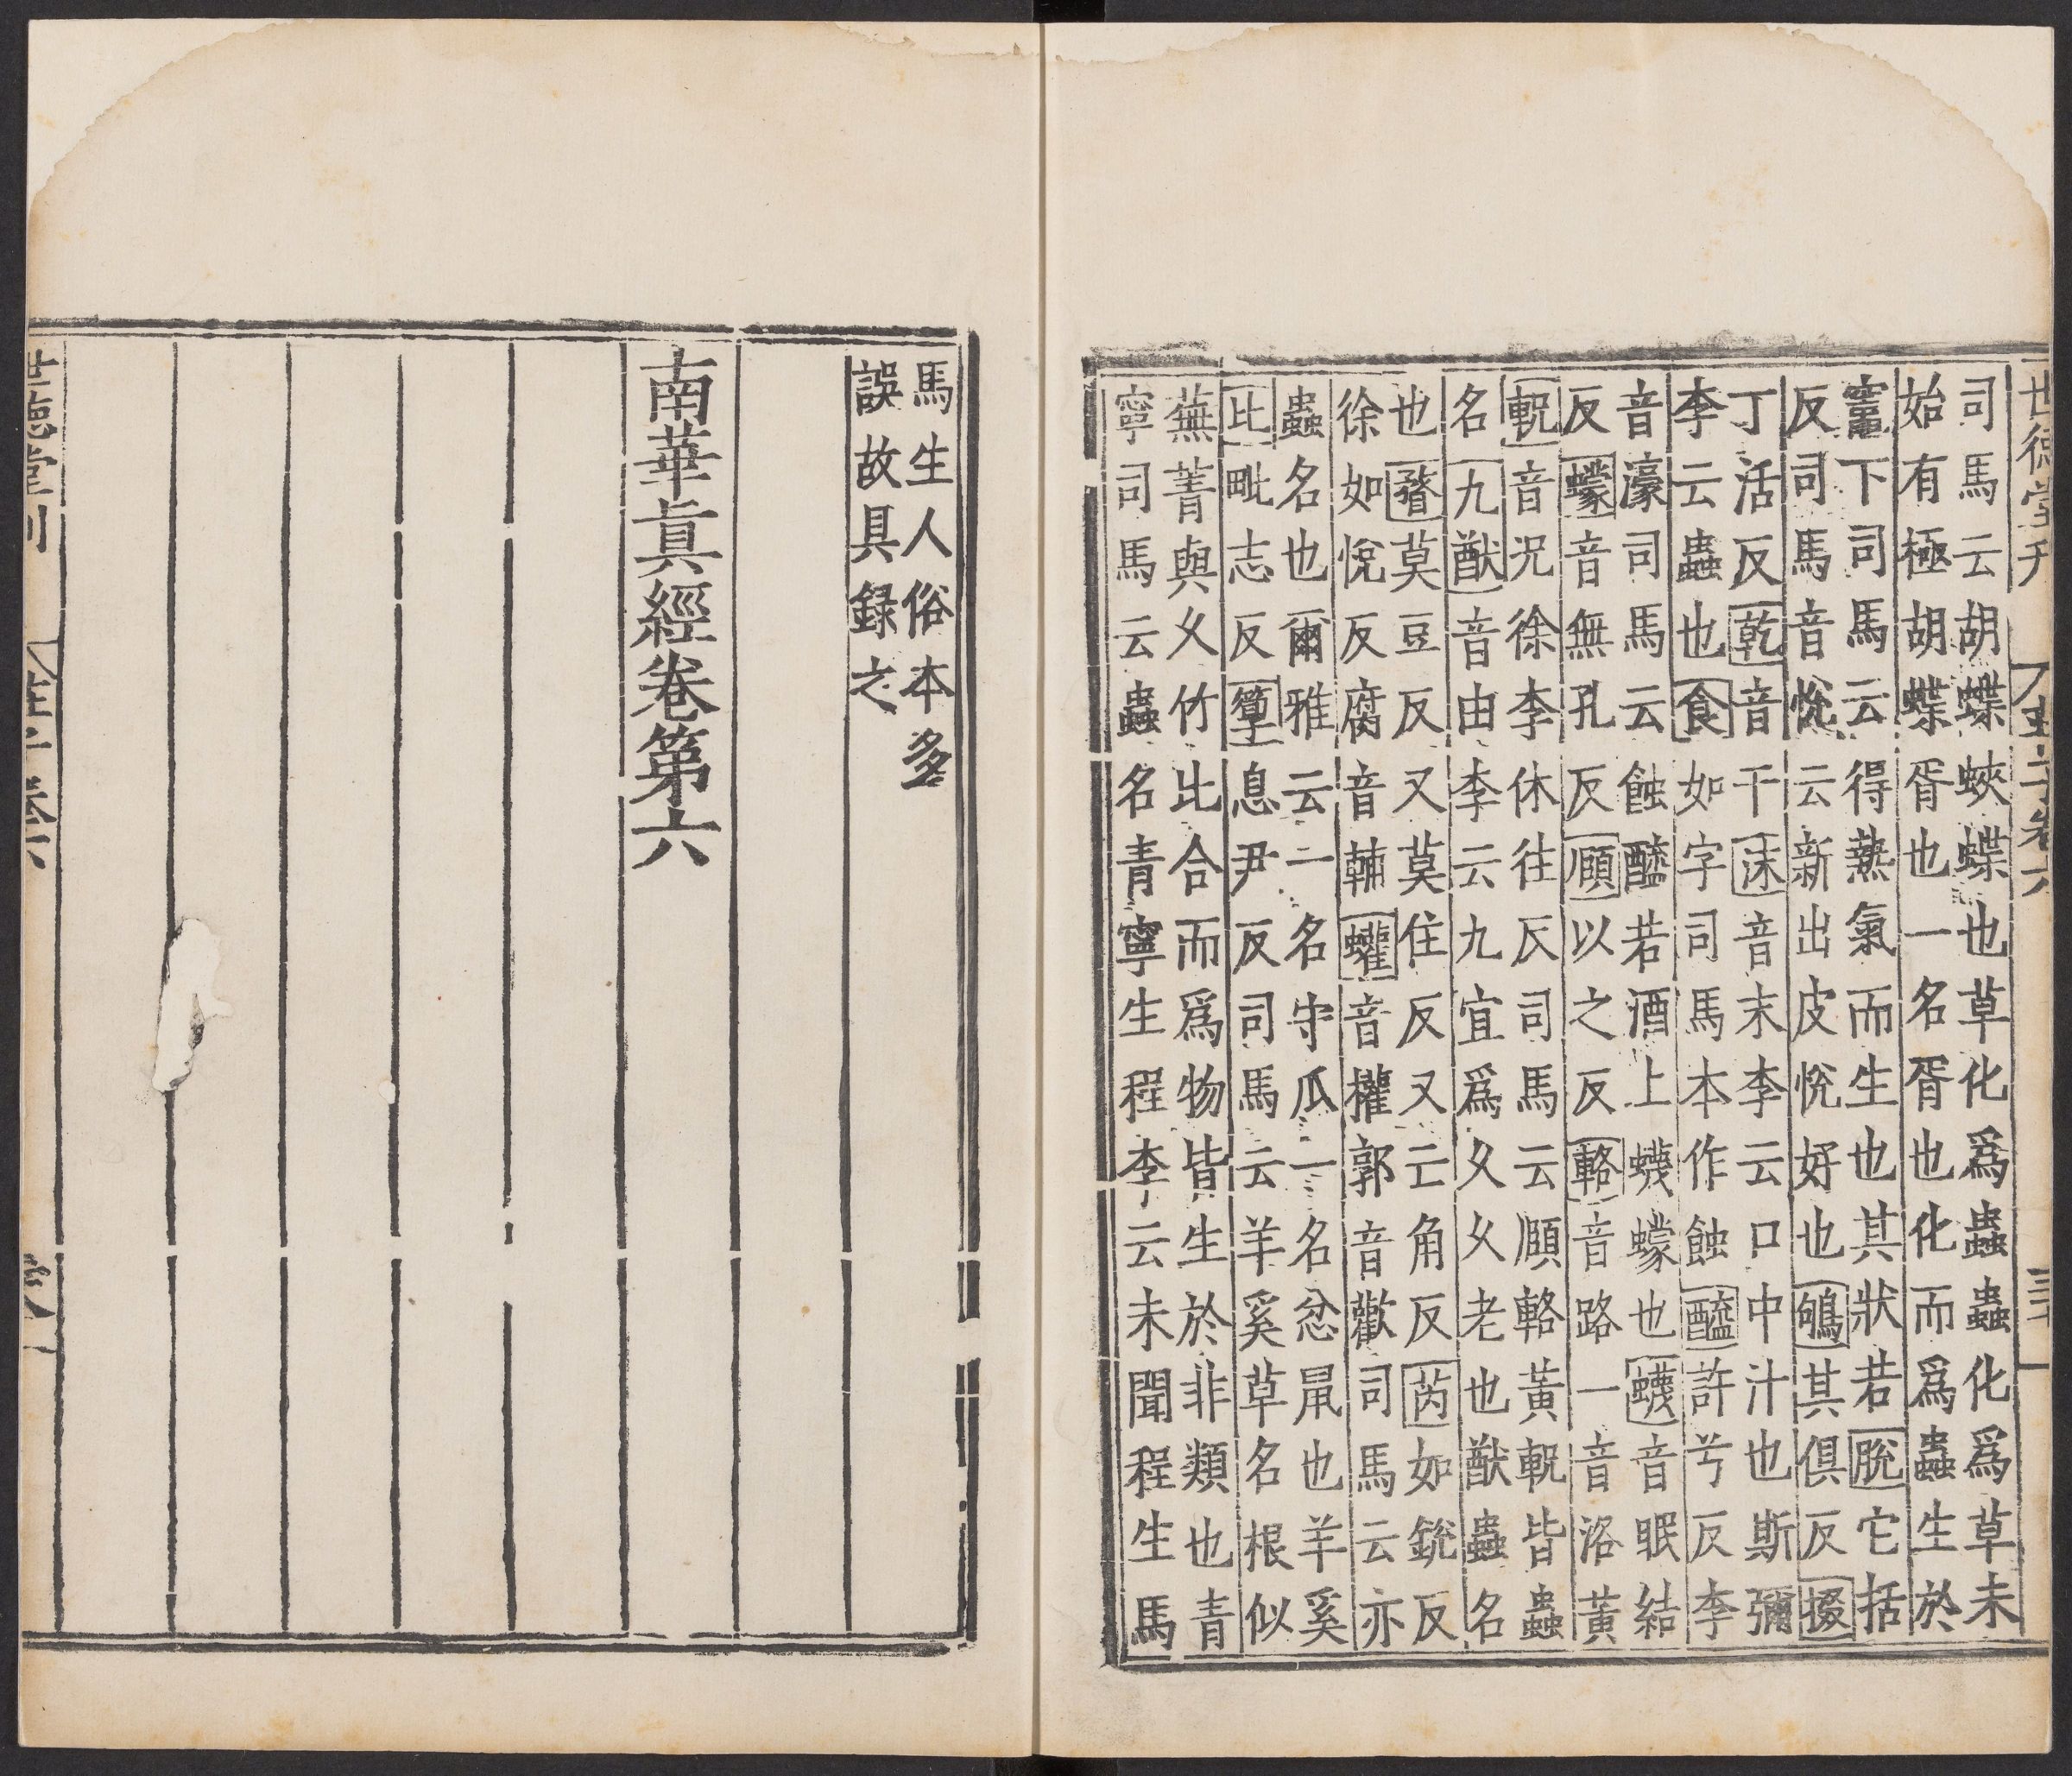 世德堂刊 莊子卷六 三十
司馬云胡蝶蛺蝶也草化爲蟲蟲化爲草未
始有極胡蝶胥也一名胥也化而爲蟲生於
竈下司馬云得熱氣而生也其狀若脫它括
反司馬音悅云新出皮悅好也鴝其俱反掇
丁活反乾音干沫音末李云口中汁也斯彌
李云蟲也食如字司馬本作蝕醯許兮反李
音濠司馬云蝕醯若酒上蠛蠓也蠛音眠結
反蠓音無孔反頤以之反輅音路一音洛黃
軦音况徐李休往反司馬云頤輅黃軦皆蟲
名九猷音由李云九宜爲久久老也猷蟲名
也瞀莫豆反又莫住反又亡角反芮如銳反
徐如悅反腐音輔蠸音權郭音歡司馬云亦
蟲名也爾雅云一名守瓜一名忿鼡也羊奚
比毗志反箰息尹反司馬云羊奚草名根似
蕪菁與久竹比合而爲物皆生於非類也青
寧司馬云蟲名青寧生程李云未聞程生馬
馬生人俗本多
誤故具録之
南華眞經卷第六
世德堂刊 莊子卷六